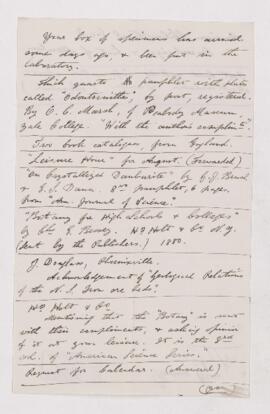 Your box of specimens has arrived
some days ago, & been put in the
laboratory.
Thick quarto pamphlet with plates
called "Odontornithes", by post, registered.
By O. C. Marsh, of Peabody Museum,
Yale College. "With the author's compliments".
Two book catalogues, from England.
"Leisure Hour" for August. (Forwarded)
"On Crystallized Danburite" by G. J. Brush
& E. S. Dana. 8vo pamphlet, 6 pages,
from "Am. Journal of Science".
"Botany for High Schools & Colleges"
by C. E. Bessey. Hy Holt & Co. N.Y.
(Sent by the Publishers.) 1880.
J. Douglass,
Acknowledgement of "Geological Relations
of the N. S. Iron ore beds".
Hy Holt & Co
Mentioning that the "Botany" is sent
with their compliments, & asking opinion
of it at your leisure. It is the 3rd
vol. of "American Science Series."
Request for Calendar. (Answered)
(Over)